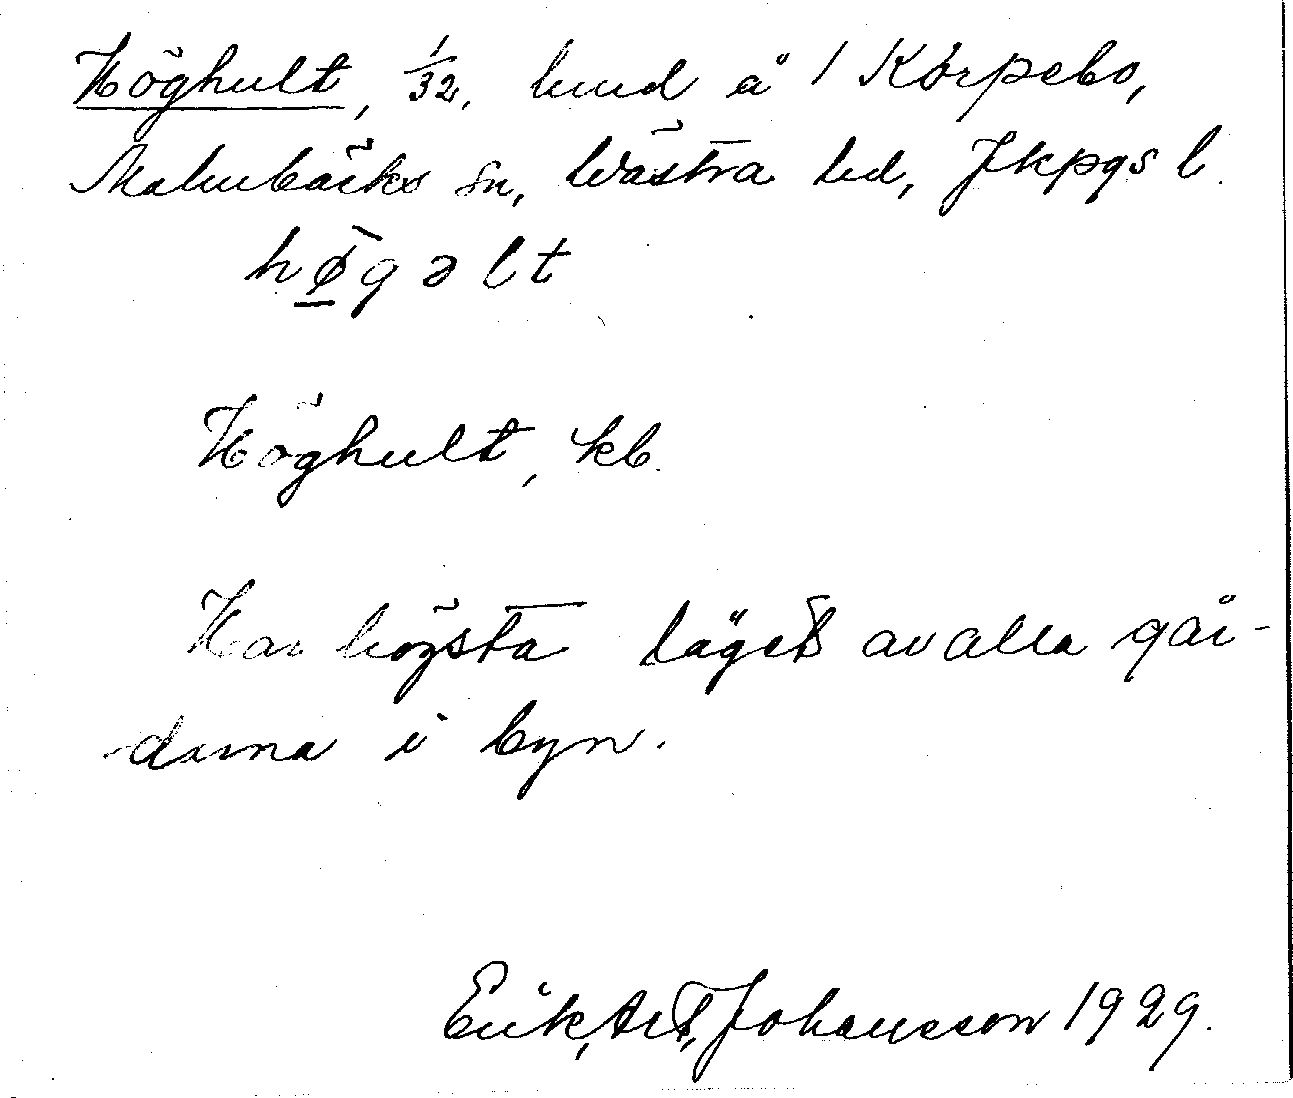 Höghult, 1/32, lund å 1 Körpebo,
Malmbäcks sn, Västra hd, Jkpgs l.
hø̱̄gəlt
Höghult, kb.
Har högsta läget av alla går-
darna i byn.
Erik Art. Johansson 1929.